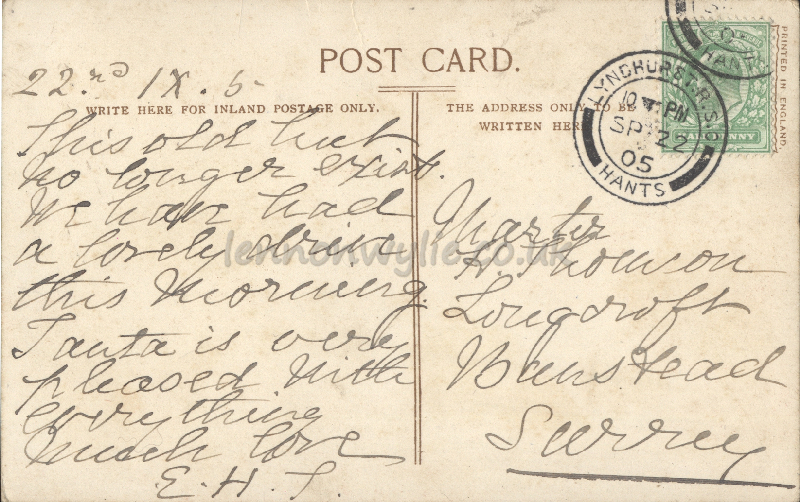 POST CARD.
PRINTED IN ENGLAND.
22nd IX. 5
WRITE HERE FOR INLAND POSTAGE ONLY.
This old hut
no longer exist.
We have had
a lovely drive
this morning.
is very
pleased with
everything
much love
E.H.T.
THE ADDRESS ONLY TO BE
WRITTEN HERE
LYNDHURST R.S.O.
10 PM
SP 22
05
HANTS
HANTS
HALFPENNY
Master
A. Thomson
Longcroft
Banstead
Surrey
lennonwylie.co.uk